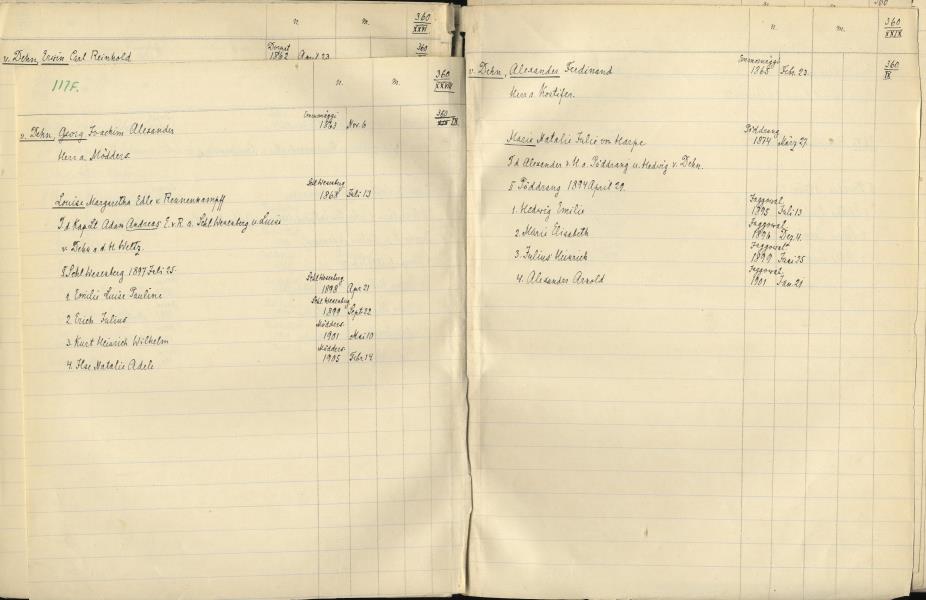 n. m. 360
XXVI
v. Dehn, Erwin Carl Reinhold
Dorpat
1862 April 23
360
117 F.
n. m. 360
XXVIII
v. Dehn, Georg Joachim Alexander
1863 Nov. 6
360
IX
Herr a. Mödders
Louise Margaretha Edle v Rennenkampff
Schl Wesenberg
1868 Juli 13
T. d. Kapitt Adam Andreas E. v R. a. Schl. Wesenberg u Luise
v. Dehn a. d. H. Weltz.
Schl Wesenberg 1897 Juli 25.
1. Emilie Luise Pauline
Schl Wesenberg
1898 Apr 21
2. Erich Julius
Schl Wesenberg
1899 Sept 22
3. Kurt Heinrich Wilhelm
Mödders
1901 Mai 10
4. Ilse Natalie Adele
Mödders
1905 Febr 14
360
n. m. 360
XXIX
v. Dehn, Alexander Ferdinand
1865 Febr. 23.
360
IX
Herr a. Kostifer.
Marie Natalie Julie von Harpe
Pöddrang
1874 März 27.
T. d. Alexander v. H. a. Pöddrang u. Hedwig v. Dehn.
Pöddrang 1894 April 29.
1. Hedwig Emilie
Jaggowal
1895 Juli 13
2. Marie Elisabeth
Jaggowal
1896 Dez. 4.
3. Julius Heinrich
Jaggowal
1899 Juni 25
4. Alexander Arnold
Jaggowal
1901 Jan. 21